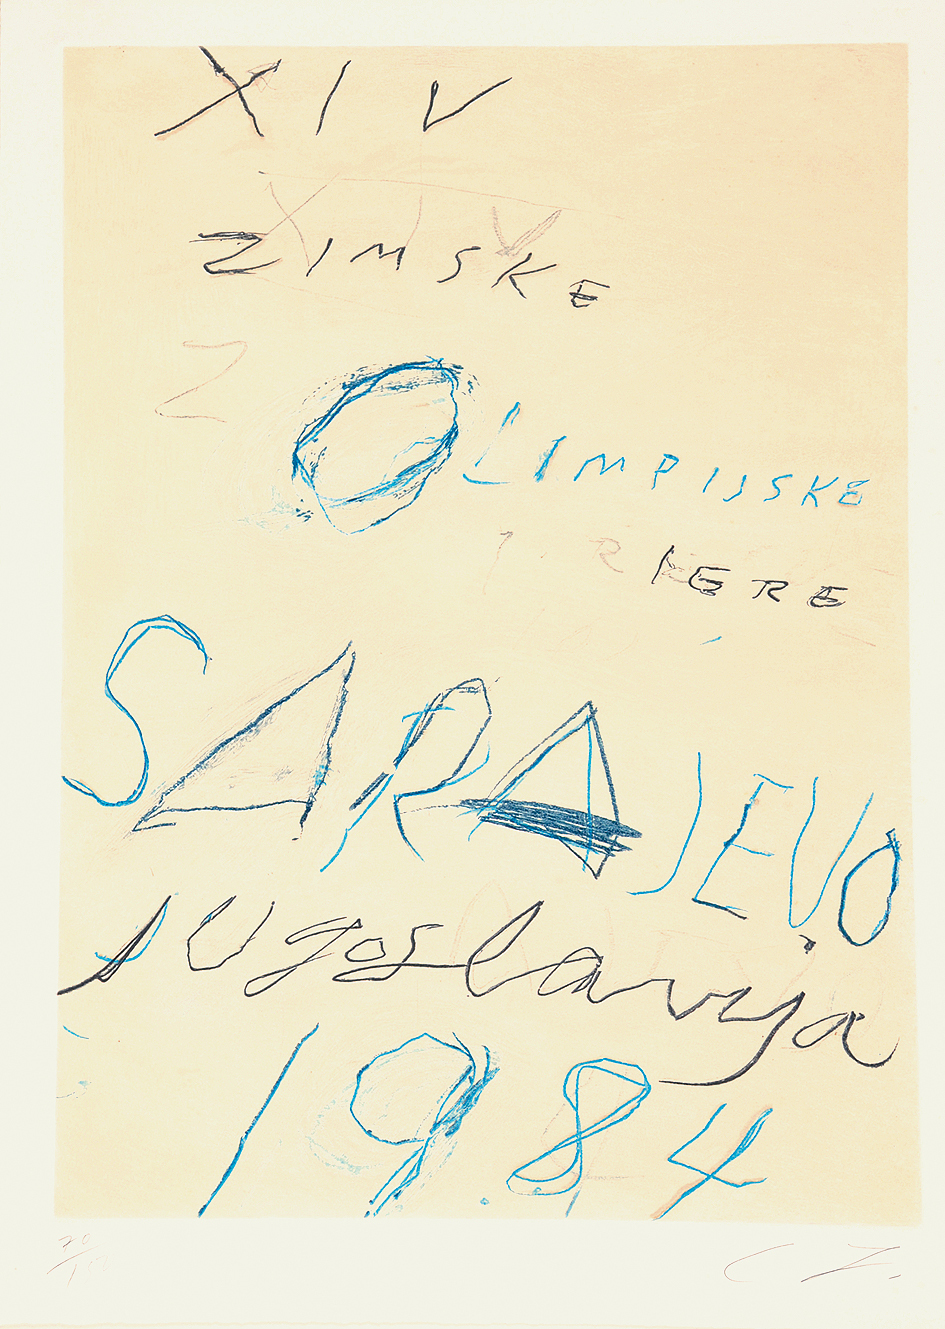 XIV
ZIMSKE
Z
OLIMPIJSKE
IGRE
SARAJEVO
Jugoslavija
1984